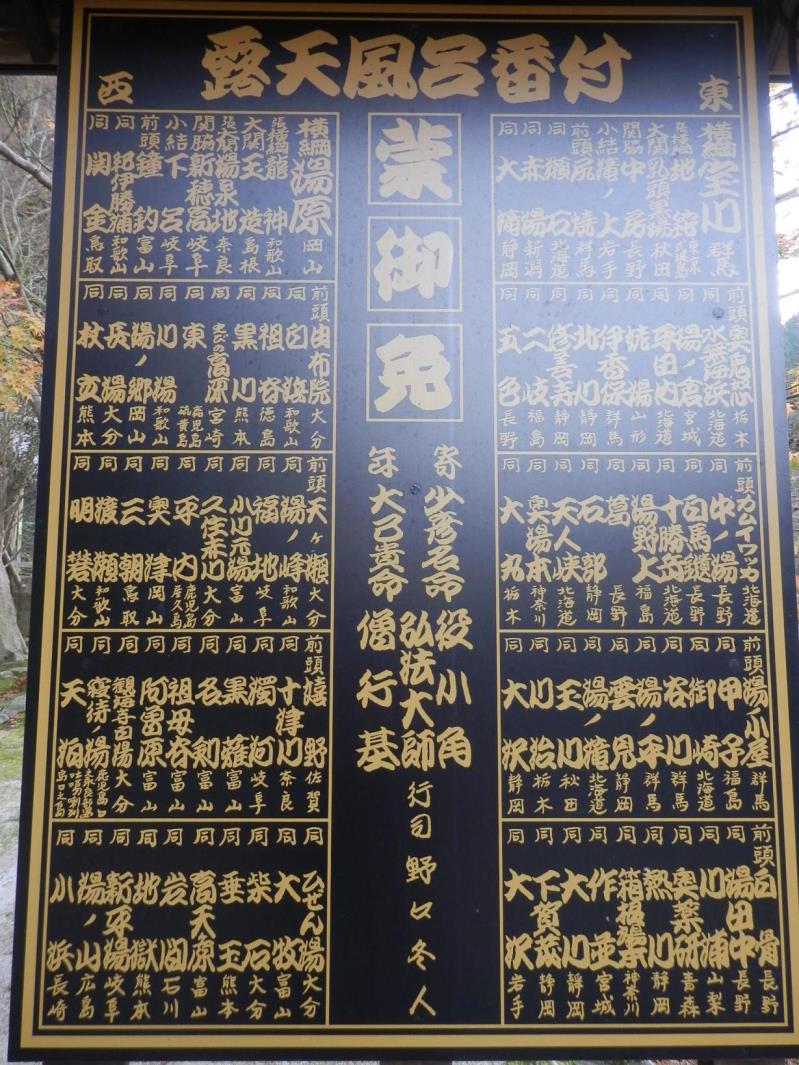 露天風呂番付
東
横綱 宝川 群馬
張出横綱 地鉈 東京式根島
大関 乳頭黒湯 秋田
関脇 中房 長野
小結 滝ノ上 岩手
前頭 尻焼 群馬
同 瀬石 北海道
同 赤湯 新潟
同 大滝 静岡
前頭 奥鬼怒 栃木
同 水無海浜 北海道
同 湯ノ倉 宮城
同 平田内 北海道
同 姥湯 山形
同 伊香保 群馬
同 北川 静岡
同 修善寺 静岡
同 二岐 福島
同 五色 長野
前頭 カムイワッカ 北海道
同 中ノ湯 長野
同 白馬鑓 長野
同 十勝岳 北海道
同 湯野上 福島
同 葛 長野
同 石部 静岡
同 天人峡 北海道
同 奥湯本 神奈川
同 大丸 栃木
前頭 湯ノ小屋 群馬
同 甲子 福島
同 御崎 北海道
同 呑川 群馬
同 湯ノ平 群馬
同 雲見 静岡
同 湯ノ滝 北海道
同 玉川 秋田
同 川治 栃木
同 大沢 静岡
前頭 白骨 長野
同 湯田中 長野
同 川浦 山梨
同 奥薬研 青森
同 熱川 静岡
同 箱根 神奈川
同 作並 宮城
同 大川 静岡
同 下賀茂 静岡
同 大沢 岩手
蒙御免
寄 少彦名命 役小角
弘法大師
年 大己貴命 僧行基
行司 野口冬人
西
横綱 湯原 岡山
張出横綱 龍神 和歌山
大関 玉造 島根
張出大関 湯泉地 奈良
関脇 新穂高 岐阜
小結 下呂 岐阜
前頭 鐘釣 富山
同 紀伊勝浦 和歌山
同 関金 鳥取
前頭 由布院 大分
同 白浜 和歌山
同 祖谷 徳島
同 黒川 熊本
同 えびの高原 宮崎
同 東 鹿児島硫黄島
同 川湯 和歌山
同 湯ノ郷 岡山
同 長湯 大分
同 杖立 熊本
前頭 天ヶ瀬 大分
同 湯ノ峰 和歌山
同 福地 岐阜
同 小川元湯 富山
同 久住赤川 大分
同 平内 鹿児島屋久島
同 奥津 岡山
同 三朝 鳥取
同 渡瀬 和歌山
同 明礬 大分
前頭 嬉野 佐賀
同 十津川 奈良
同 濁河 岐阜
同 黒薙 富山
同 名剣 富山
同 祖母谷 富山
同 阿曽原 富山
同 観海寺 大分
同 寝待ノ湯 鹿児島口永良部島
同 天泊
前頭 ひぜん湯 大分
同 大牧 富山
同 柴石 大分
同 垂玉 熊本
同 高天原 富山
同 岩間 石川
同 地獄 熊本
同 新平湯 岐阜
同 湯ノ山 広島
同 小浜 長崎